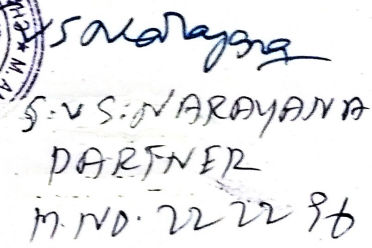 S.V.S. NARAYANA
PARTNER
M.NO. 222296